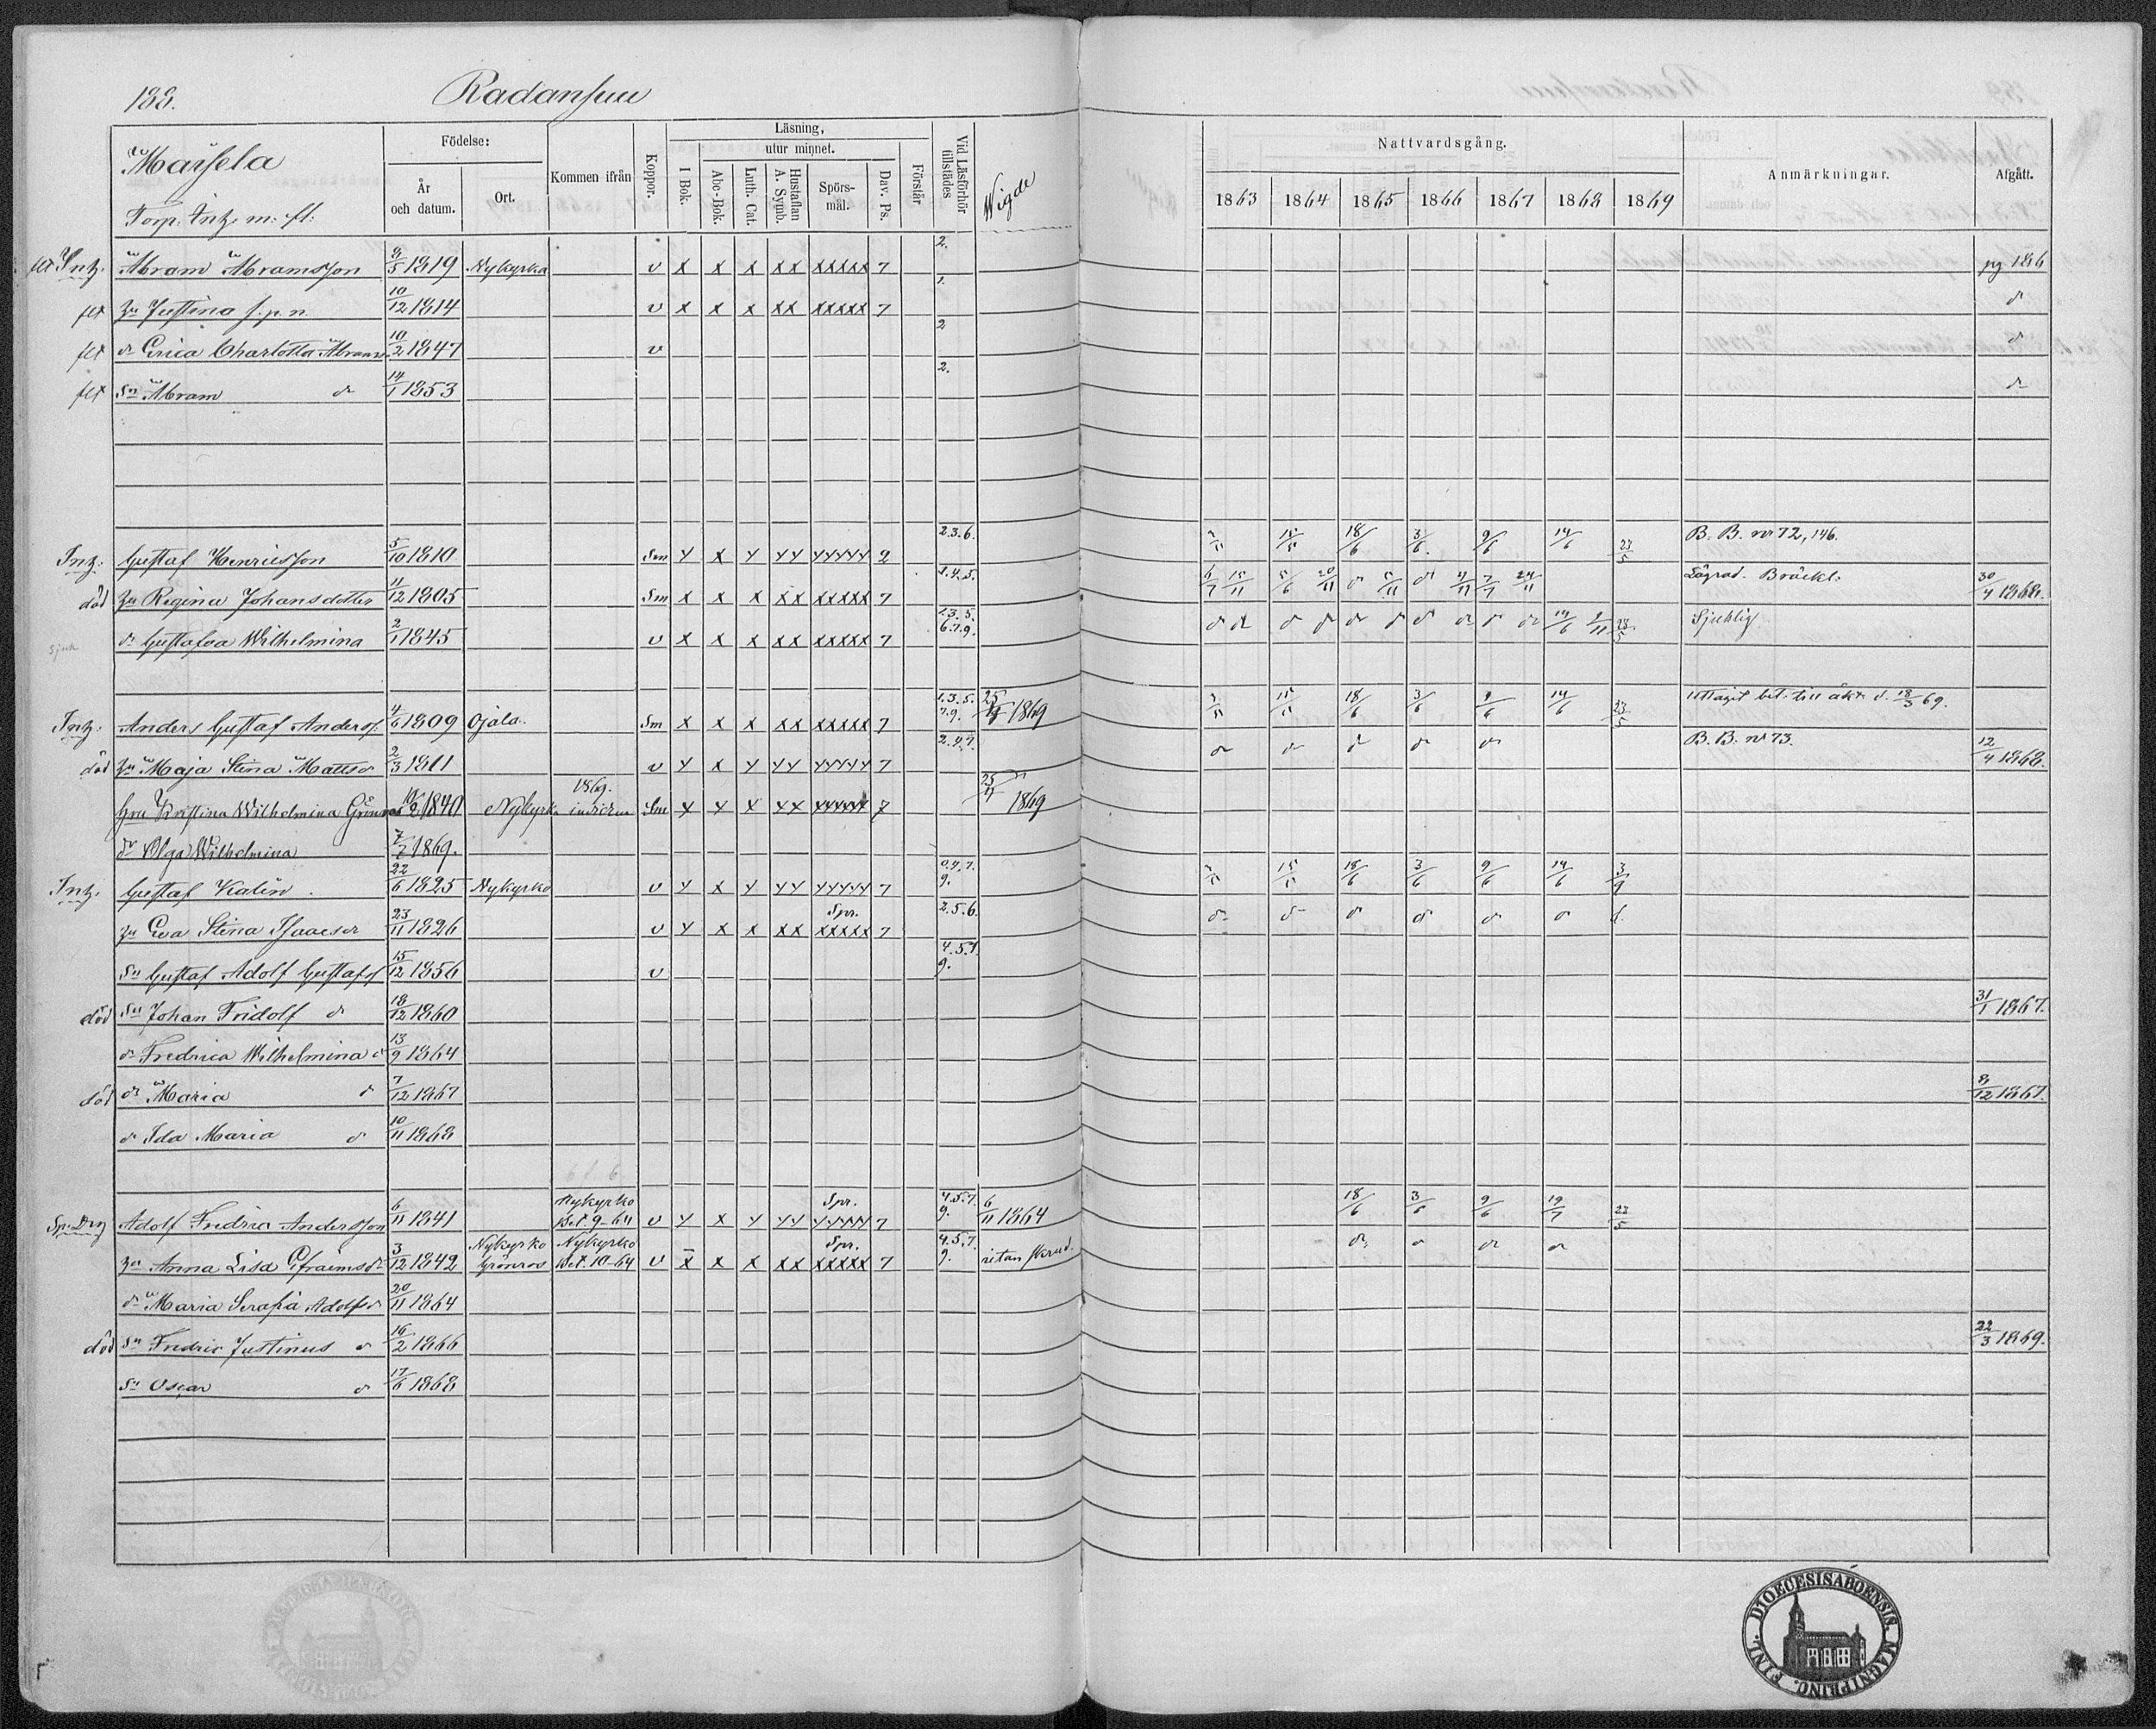 188. Radansuu
Maisela
Torp. Inh. m. fl:
Födelse: År och datum. Ort. Kommen ifrån Koppor. Läsning, I Bok. utur minnet. Abc-Bok. Luth. Cat. Hustaflan A. Symb. Spörs-mål. Dav. Ps. Förstår Vid Läsförhör tillstädes Wigde Nattvardsgång. 1863 1864 1865 1866 1867 1868 1869 Anmärkningar. Afgått.
flt Inh. Abram Abramsson 8/5 1819 Nykyrka v x x x xx xxxxx 7 2. pg 186
flt hu Justina s.p.n. 10/12 1814 v x x x xx xxxxx 7 1. d
flt dr Erica Charlotta Abrams 10/2 1847 v 2 d
flt Sn Abram d 14/1 1853 2. d
Inh. Gustaf Henricsson 5/10 1810 Sm y x y yy yyyyy 2 2.3.6. 15/ 18/6 3/6 9/6 14/6 23/5 B. B. nr 72, 146.
död hu Regina Johansdotter 11/12 1805 Sm x x x xx xxxxx 7 1.4.5. 6/7 15/11 5/6 20/11 d 5/11 d 4/11 7/7 24/11 Bräckl: 30/4 1868.
sjuk dr Gustafva Wilhelmina 2/1 1845 v x x x xx xxxxx 7 1.3.5. 6.7.9. d d d d d d d d d d 14/6 1/11 23/5 Sjuklig
Inh. Anders Gustaf Anderss: 4/6 1809 Ojala. Sm x x x xx xxxxx 7 1.3.5. 7.9. 25/ 1869 15/ 18/6 3/6 9/6 14/6 23/5 uttagit bet. till äkt. d. 18/3 69.
död hu Maja Stina Mattsd 2/3 1811 v y x y yy yyyyy 7 2.4.7. d d d d d B. B. nr 73. 12/4 1868.
hu Kristina Wilhelmina Grönroos 1840 Nykyrka 1869. Sm x x x xx xxxxx 7 25/ 1869
dr Olga Wilhelmina 7/7 1869.
Inh. Gustaf Kalin 22/6 1825 Nykyrko v y x y yy yyyyy 7 9. 15/ 18/6 3/6 9/6 14/6 3/9
hu Eva Stina Isaacsdr 23/11 1826 v y x x xx Spr. xxxxx 7 2.5.6. d d d d d d d.
Sn Gustaf Adolf Gustafss 15/12 1856 v 4.5.7 9.
död Sn Johan Fridolf d 18/12 1860 31/1 1867.
dr Fredrica Wilhelmina d 13/9 1864
död dr Maria d 7/12 1867 8/12 1867.
dr Ida Maria d 10/11 1868
Adolf Fredric Andersson 6/11 1841 Nykyrko Bet. 9-64 v y x y yy Spr. yyyyy 7 4.5.7. 9. 6/11 1864 18/6 3/6 9/6 19/7 23/5
hu Anna Lisa Efraimsdr 3/12 1842 Nykyrko Grönros Nykyrko Bet. 10-64 v x x x xx Spr. xxxxx 7 4.5.7. 9. utan skrud. d d d d
dr Maria Serafia Adolfsd 20/11 1864
död Sn Fredric Justinus d 16/2 1866 22/3 1869.
Sn Oscar d 17/6 1868
FINL. DIOECESIS ABOENSIS. MAGNI PRINC.